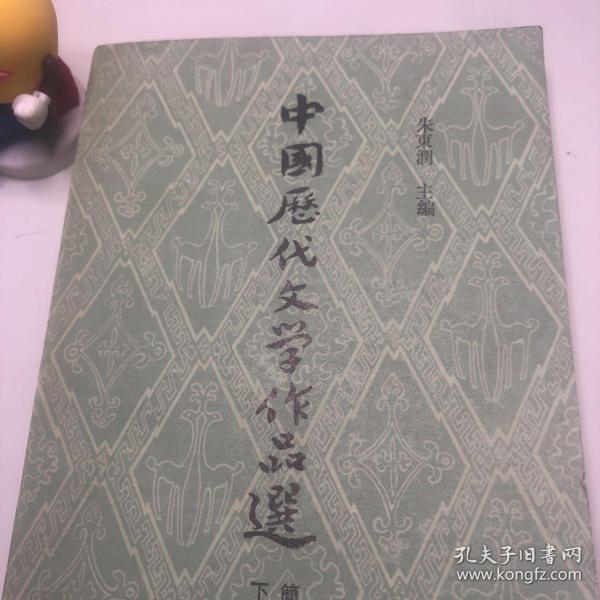 朱東潤 主編
中國歷代文学作品選
簡
下
孔夫子旧書网
www.kongfz.com